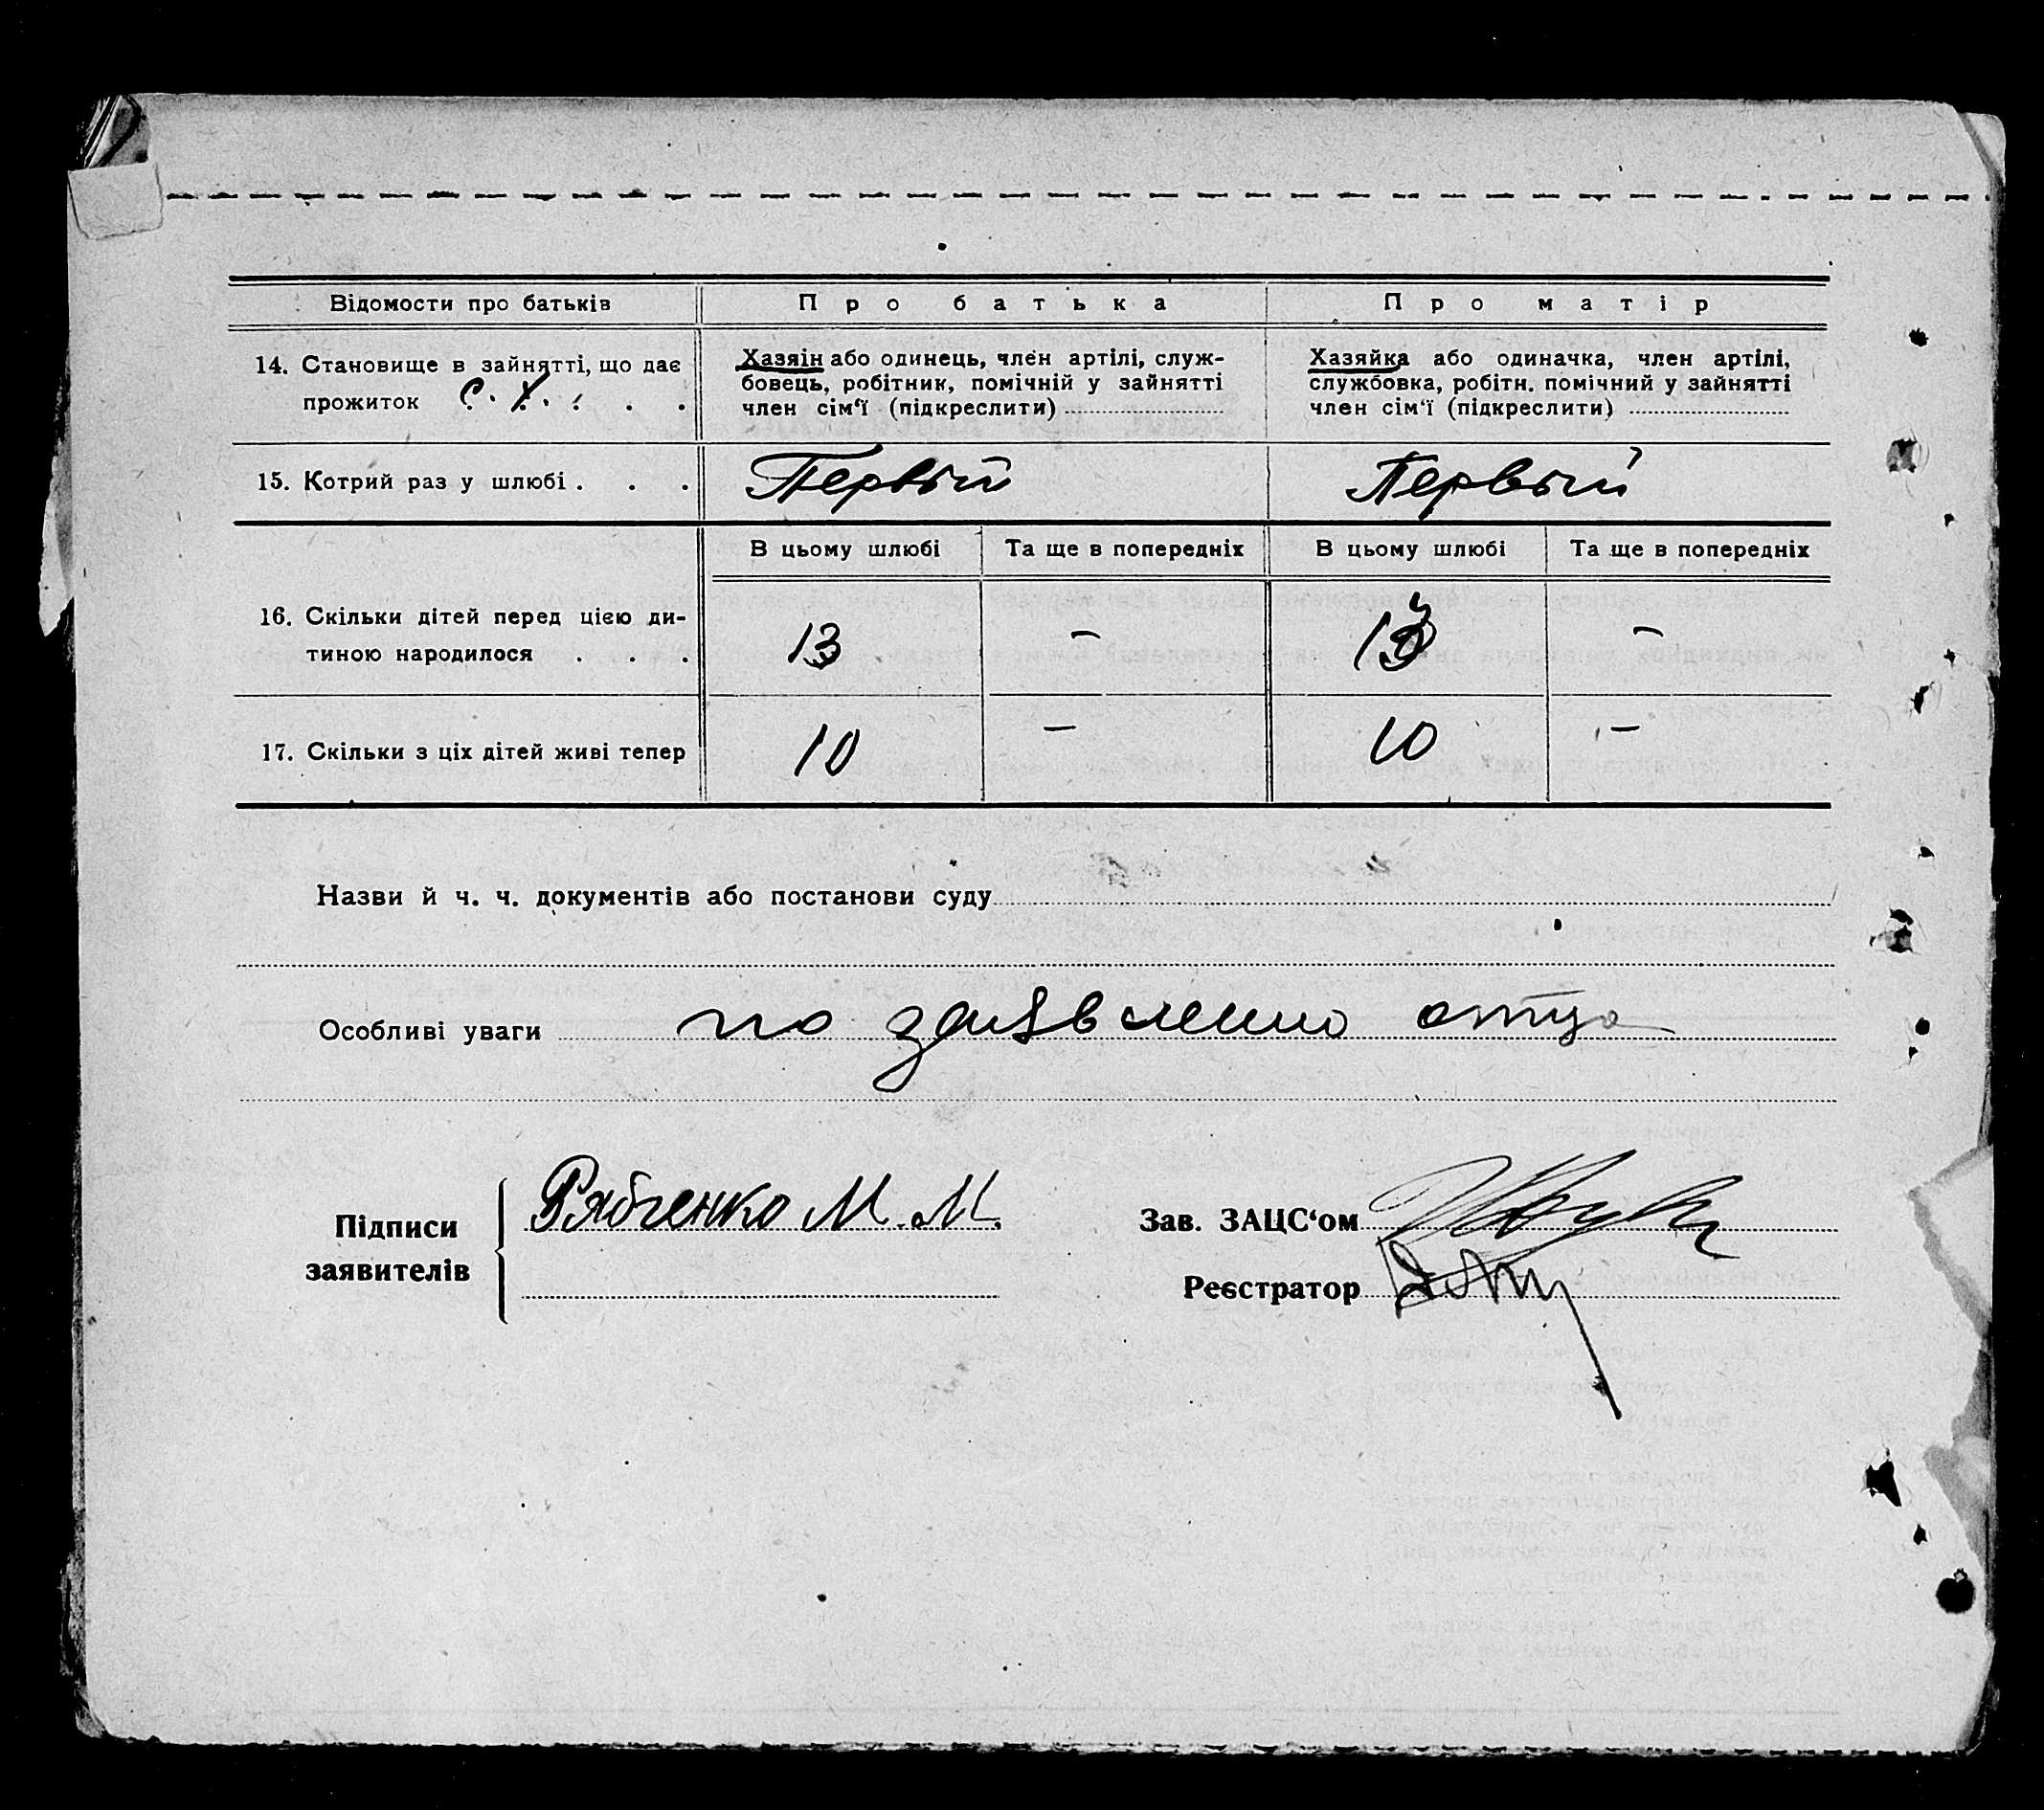 Відомости про батьків Про батька Про матір
14. Становище в зайнятті, що дає
прожиток с. х. . . .
Хазяін або одинець, член артілі, служ-
бовець, робітник, помічній у зайнятті
член сім'ї (підкреслити)
Хазяйка або одиначка, член артілі,
службовка, робітн. помічний у зайнятті
член сім'ї (підкреслити)
15. Котрий раз у шлюбі . . . Первый Первый
В цьому шлюбі Та ще в попередніх В цьому шлюбі Та ще в попередніх
16. Скільки дітей перед цією ди-
тиною народилося . . . 13 – 13 –
17. Скільки з ціх дітей живі тепер 10 – 10 –
Назви й ч. ч. документів або постанови суду
Особливі уваги по заявлению отца
Підписи
заявителів
Рябченко М. М.
Зав. ЗАЦС'ом
Реєстратор